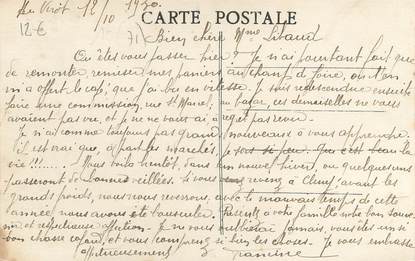 Le Virot 12/10 1920.
12 €
CARTE POSTALE
71 Bien chère Mme Litaud
Où êtes vous passer hier ? Je n'ai pourtant fait que
de remonter, remiser mes paniers au champ de foire, où l'on
m'a offert le café; que j'ai bu en vitesse. Je suis redescendue ensuite
faire une commission, rue St Marcel, au bazar, ces demoiselles ne vous
avaient pas vue, et je ne vous ai, à regret pas revue.
Je n'ai comme toujours pas grand nouveaux à vous apprendre.
Il est vrai que, à part les marchés, je sors si peu. Que c'est beau la
vie !!!...... ! Mais voilà bientôt, dans un nouvel hiver, ou quelques uns
passeront de bonnes veillées. Si vous revenez à Cluny, avant les
grands froids, nous nous reverrons, avec le mauvais temps de cette
année nous avons été bousculer. Recevez à votre famille notre bon souve-
nir et respectueuse affection. Je ne vous oublierai jamais, vous êtes un si
bon chasse cafard, et vous comprenez si bien les choses. Je vous embrasse
affectueusement
Janine